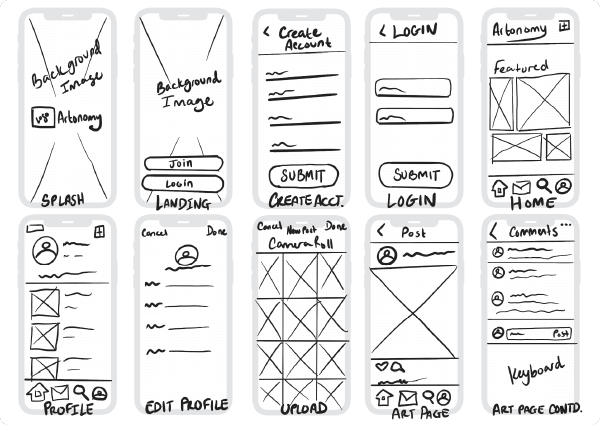 Background
Image
Artonomy
SPLASH
Background
Image
Join
Login
LANDING
< Create
Account
SUBMIT
CREATE ACCT.
< LOGIN
SUBMIT
LOGIN
Artonomy
Featured
HOME
PROFILE
Cancel Done
EDIT PROFILE
Cancel New Post Done
Camera Roll
UPLOAD
< Post
ART PAGE
< Comments ...
Post
Keyboard
ART PAGE CONTD.